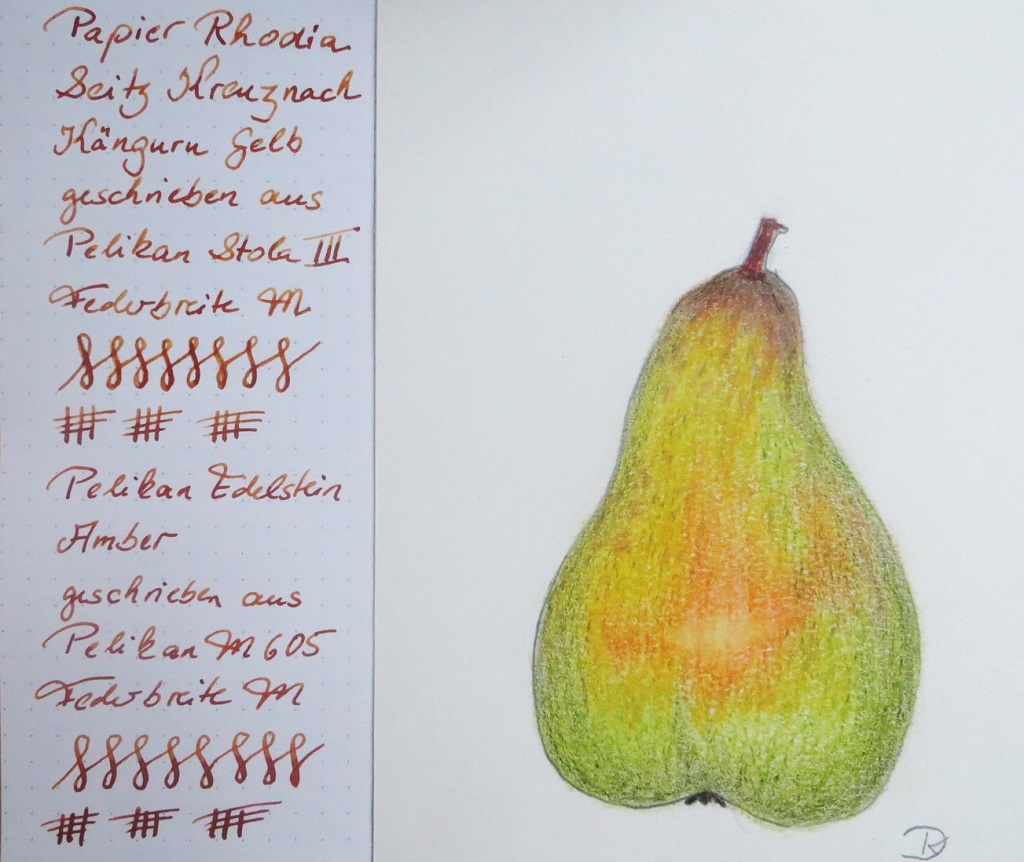 Papier Rhodia
Seitz Kreuznach
Känguru Gelb
geschrieben aus
Pelikan Stola III
Federbreite M
Pelikan Edelstein
Amber
geschrieben aus
Pelikan M 605
Federbreite M